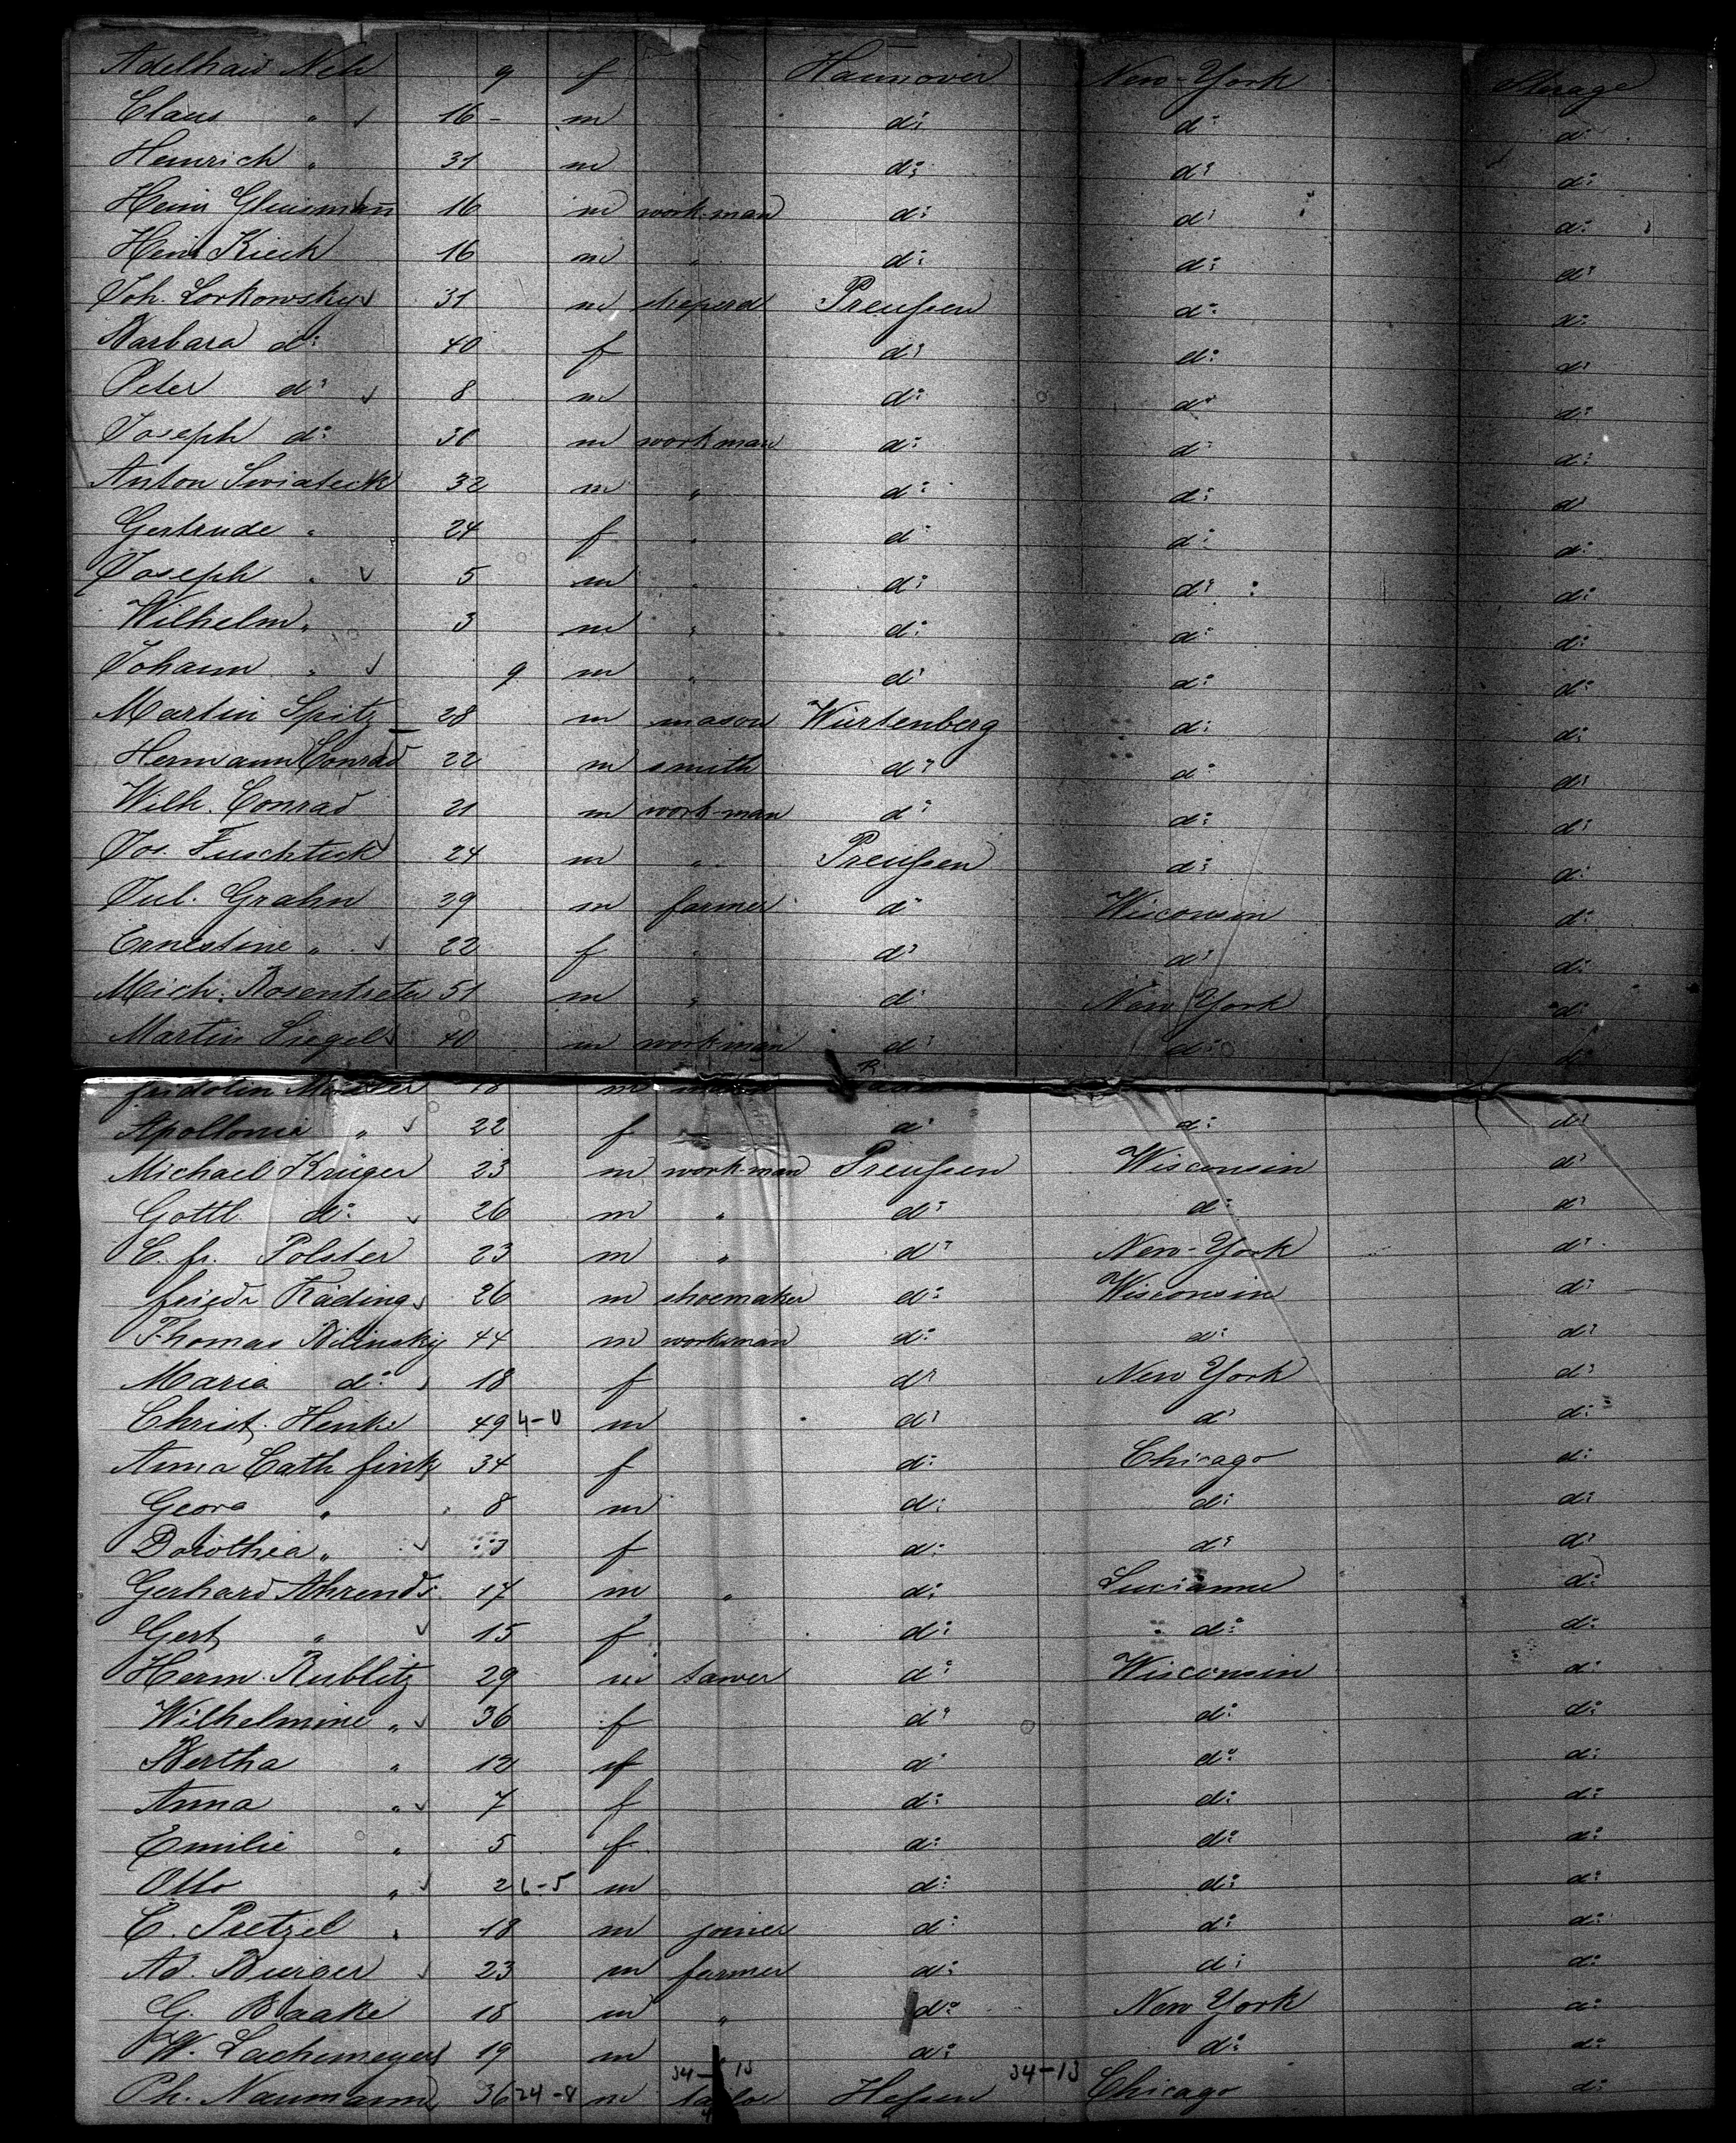 Adelhaid Neh 9 f Hannover New-York Sterage
Claus " 16 - m d: d: d:
Heinrich " 31 m d: d: d:
Heinr Glusmann 16 m work-man d: d: d:
Heinr Kiech 16 m " d: d: d:
Joh. Lorkowsky 31 m sheperd Preußen d: d:
Barbara d: 40 f d: d: d:
Peter d: 8 m d: d: d:
Joseph d: 30 m workman d: d: d:
Anton Swiateck 32 m " d: d: d:
Gertrude " 24 f " d: d: d:
Joseph " 5 m " d: d: d:
Wilhelm " 3 m " d: d: d:
Johann " 9 m " d: d: d:
Martin Spitz 28 m mason Würtenberg d: d:
Hermann Conrad 22 m smith d: d: d:
Wilh. Conrad 21 m work-man d: d: d:
Jos. Fuschteck 24 m " Preußen d: d:
Jul. Grahn 29 m farmer d: Wisconsin d:
Ernestine " 22 f " d: d: d:
Mich. Rosentreter 51 m " d: New York d:
Martin Siegel 40 m workman d: d: d:
fridolin 18 m
Apollonia " 22 f d: d: d:
Michael Krüger 23 m work-man Preußen Wisconsin d:
Gottl. d: 26 m " d: d: d:
C. fr. Polster 23 m " d: New-York d:
friedr Käding 26 m shoemaker d: Wisconsin d:
Thomas Bilinsky 44 m workman d: d: d:
Maria d: 18 f d: New York d:
Christ. Henke 49 4-0 m d: d: d:
Anna Cath fink 34 f d: Chicago d:
Georg " 8 m d: d: d:
Dorothea " 3 f d: d: d:
Gerhard Ahrends 17 m " d: Lucianne d:
Gert " 15 f d: d: d:
Herm. Rublitz 29 m sawer d: Wisconsin d:
Wilhelmine " 36 f d: d: d:
Bertha " 12 f d: d: d:
Anna " 7 f d: d: d:
Emilie " 5 f d: d: d:
Otto " 2 6-5 m d: d: d:
C. Pretzel 18 m joiner d: d: d:
Ad. Burger 23 m farmer d: d: d:
G. Blaake 18 m " d: New York d:
W. Lachemeyer 19 m d: d: d:
34-13 34-13
Ph. Naumann 36 24-8 m tailor Heßen Chicago d: